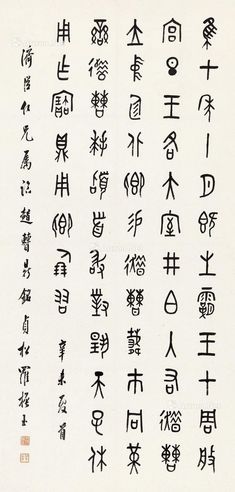 隹七年十月既生霸王才周般
宮旦王各大室井白入右趞曹
立中廷北鄉易趞曹市冋黃
䜌趞曹拜𩒨首敢對揚天子休
用乍寶鼎用鄉倗友
辛未夏首
濟臣仁兄屬臨趞曹鼎銘貞松羅振玉